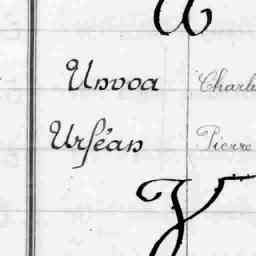 U
Unvoa Charl
Urféan Pierre
V